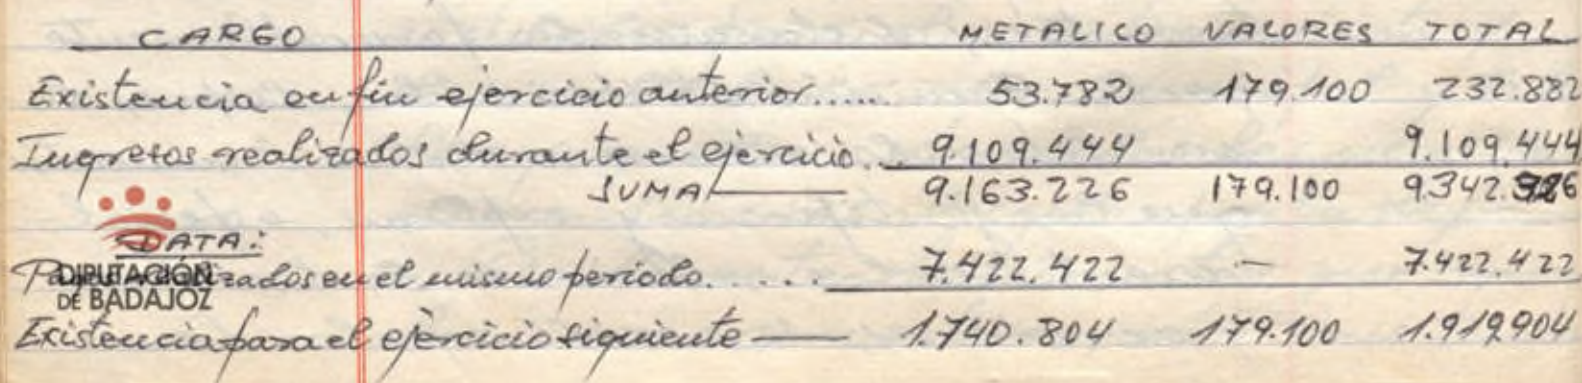 CARGO METALICO VALORES TOTAL
Existencia en fin ejercicio anterior..... 53.782 179.100 232.882
Ingresos realizados durante el ejercicio... 9.109.444 9.109.444
SUMA 9.163.226 179.100 9.342.326
DATA:
DIPUTACIÓN
DE BADAJOZ
en el mismo periodo..... 7.422.422 — 7.422.422
Existencia para el ejercicio siguiente — 1.740.804 179.100 1.919.904